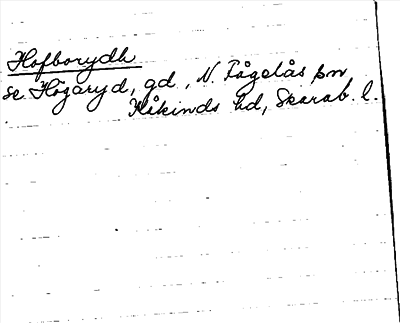 Hofborydh
se Högaryd, gd, N. Fågelås sn
Kåkinds hd, Skarab. l.